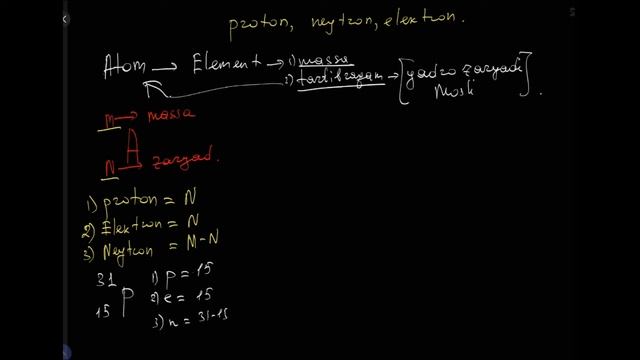 proton, neytron, elektron.
Atom → Element → 1) massa
2) tartib raqam → [yadro zaryadi
Mosk ].
M → massa
A
N → zaryad.
1) proton = N
2) Elektron = N
3) Neytron = M-N
31
15 P
1) p = 15
2) e = 15
3) n = 31-15